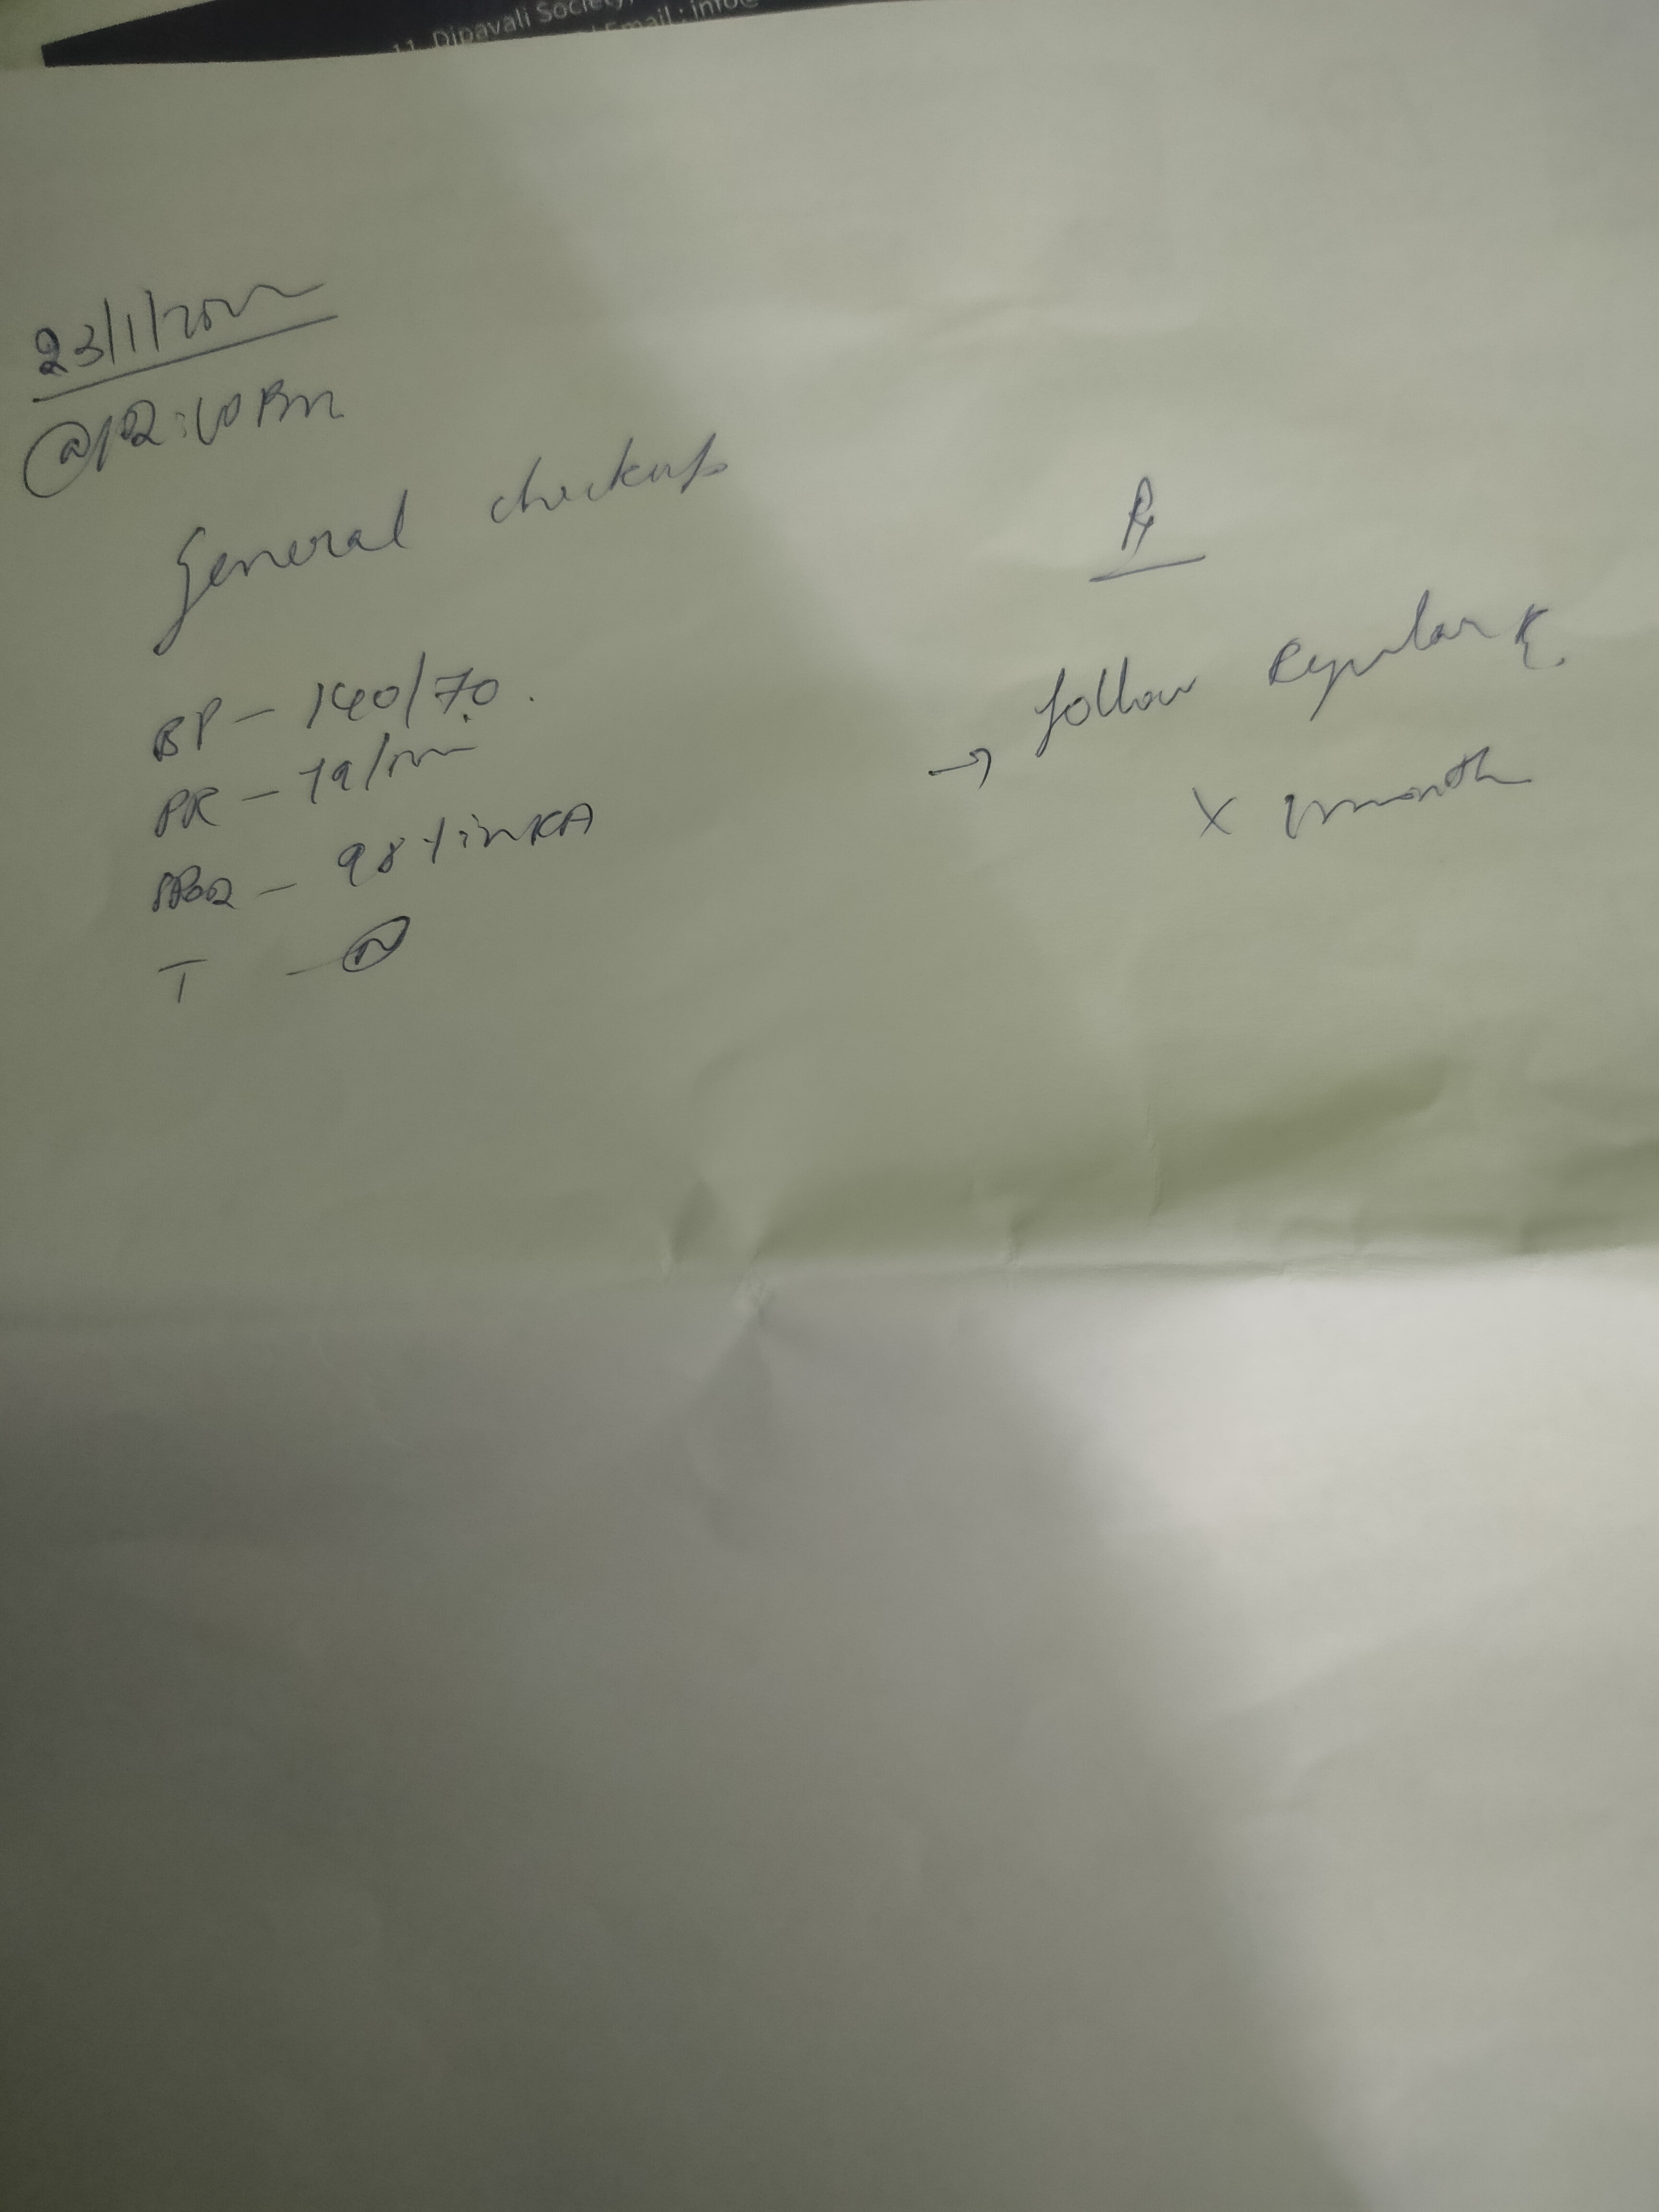 11, Dipavali Society,
Email : info@
23/1/20
@12:10 Pm
General checkup
BP - 140/70.
PR - 79/min
SPO2 - 98% in RA
T - N
Rx
→ follow Regular
x 1 month